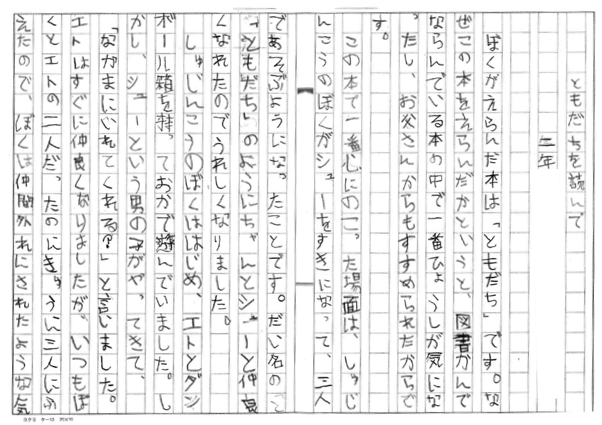 ともだちを読んで
三年
ぼくがえらんだ本は「ともだち」です。な
ぜこの本をえらんだかというと、図書かんで
ならんでいる本の中で一番ひょうしが気にな
ったし、お父さんからもすすめられたからで
す。
この本で一番心にのこった場面は、しゅじ
んこうのぼくがシューをすきになって、三人
であそぶようになったことです。だい名のご
「ともだち」のようにちゃんとシューと仲良
くなれたのでうれしくなりました。
しゅじんこうのぼくははじめ、エトとダン
ボール箱を持っておかで遊んでいました。し
かし、シューという男の子がやってきて、
「なかまにいれてくれる?」と言いました。
エトはすぐに仲良くなりましたが、いつもぼ
くとエトの二人だったのにきゅうに三人にふ
えたので、ぼくは仲間外れにされたような気